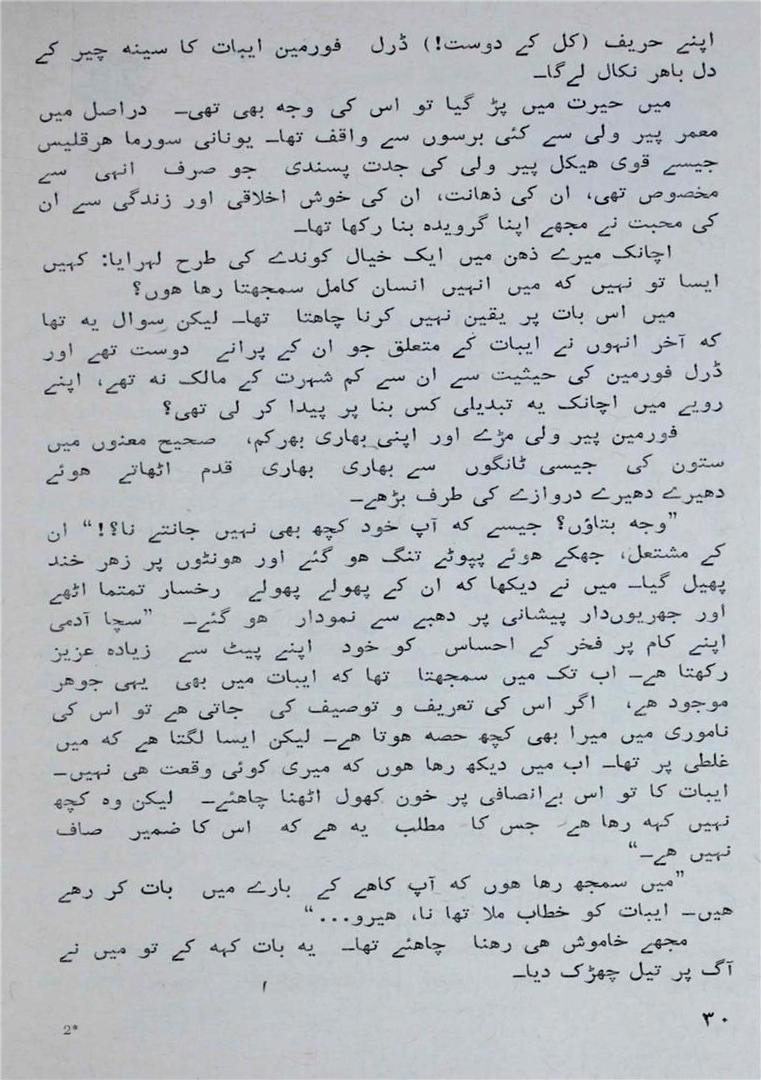 اپنے حریف (کل کے دوست!) ڈرل فورمین ایبات کا سینہ چیر کے
دل باہر نکال لےگا۔
میں حیرت میں پڑ گیا تو اس کی وجہ بھی تھی۔ دراصل میں
معمر پیر ولی سے کئی برسوں سے واقف تھا۔ یونانی سورما ہرقلیس
جیسے قوی ہیکل پیر ولی کی جدت پسندی جو صرف انہی سے
مخصوص تھی، ان کی ذہانت، ان کی خوش اخلاقی اور زندگی سے ان
کی محبت نے مجھے اپنا گرویدہ بنا رکھا تھا۔
اچانک میرے ذہن میں ایک خیال کوندے کی طرح لہرایا: کہیں
ایسا تو نہیں کہ میں انہیں انسان کامل سمجھتا رہا ہوں؟
میں اس بات پر یقین نہیں کرنا چاہتا تھا۔ لیکن سوال یہ تھا
کہ آخر انہوں نے ایبات کے متعلق جو ان کے پرانے دوست تھے اور
ڈرل فورمین کی حیثیت سے ان سے کم شہرت کے مالک نہ تھے، اپنے
رویے میں اچانک یہ تبدیلی کس بنا پر پیدا کر لی تھی؟
فورمین پیر ولی مڑے اور اپنی بھاری بھرکم، صحیح معنوں میں
ستون کی جیسی ٹانگوں سے بھاری بھاری قدم اٹھاتے ہوئے
دھیرے دھیرے دروازے کی طرف بڑھے۔
”وجہ بتاؤں؟ جیسے کہ آپ خود کچھ بھی نہیں جانتے نا؟!“ ان
کے مشتعل، جھکے ہوئے پپوٹے تنگ ہو گئے اور ہونٹوں پر زہر خند
پھیل گیا۔ میں نے دیکھا کہ ان کے پھولے پھولے رخسار تمتما اٹھے
اور جھریوں‌دار پیشانی پر دھبے سے نمودار ہو گئے۔ ”سچا آدمی
اپنے کام پر فخر کے احساس کو خود اپنے پیٹ سے زیادہ عزیز
رکھتا ہے۔ اب تک میں سمجھتا تھا کہ ایبات میں بھی یہی جوہر
موجود ہے، اگر اس کی تعریف و توصیف کی جاتی ہے تو اس کی
ناموری میں میرا بھی کچھ حصہ ہوتا ہے۔ لیکن ایسا لگتا ہے کہ میں
غلطی پر تھا۔ اب میں دیکھ رہا ہوں کہ میری کوئی وقعت ہی نہیں۔
ایبات کا تو اس بےانصافی پر خون کھول اٹھنا چاہئے۔ لیکن وہ کچھ
نہیں کہہ رہا ہے جس کا مطلب یہ ہے کہ اس کا ضمیر صاف
نہیں ہے۔“
”میں سمجھ رہا ہوں کہ آپ کاہے کے بارے میں بات کر رہے
ہیں۔ ایبات کو خطاب ملا تھا نا، ہیرو...“
مجھے خاموش ہی رہنا چاہئے تھا۔ یہ بات کہہ کے تو میں نے
آگ پر تیل چھڑک دیا۔
۳۰
2*